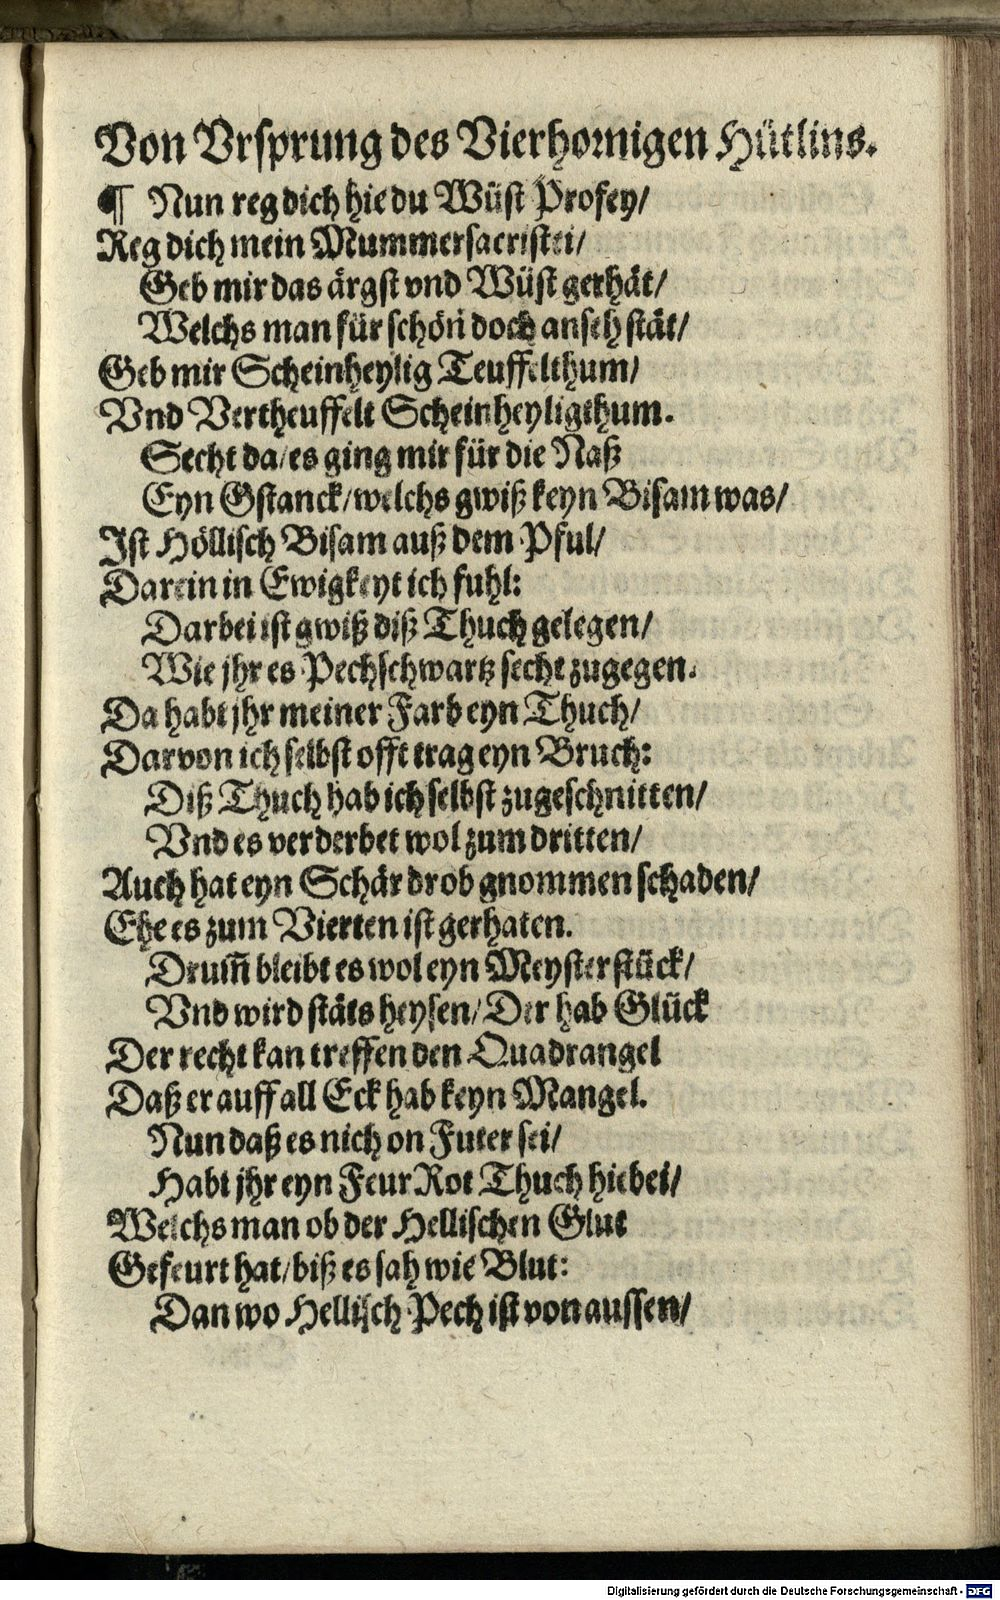 Von Vrsprung des Vierhornigen Hütlins.
¶ Nun reg dich hie du Wüst Profey/
Reg dich mein Mummersacristei/
Geb mir das ärgst vnd Wüst gerhät/
Welchs man für schön doch anseh stät/
Geb mir Scheinheylig Teuffelthum/
Vnd Vertheuffelt Scheinheyligthum.
Secht da/es ging mir für die Naß
Eyn Gstanck/welchs gwiß keyn Bisam was/
Ist Höllisch Bisam auß dem Pful/
Darein in Ewigkeyt ich fuhl:
Darbei ist gwiß diß Thuch gelegen/
Wie jhr es Pechschwartz secht zugegen.
Da habt jhr meiner Farb eyn Thuch/
Darvon ich selbst offt trag eyn Bruch:
Diß Thuch hab ich selbst zugeschnitten/
Vnd es verderbet wol zum dritten/
Auch hat eyn Schär drob gnommen schaden/
Ehe es zum Vierten ist gerhaten.
Drum̃ bleibt es wol eyn Meysterstück/
Vnd wird stäts heysen/Der hab Glück
Der recht kan treffen den Quadrangel
Daß er auff all Eck hab keyn Mangel.
Nun daß es nich on Futer sei/
Habt jhr eyn Feur Rot Thuch hiebei/
Welchs man ob der Hellischen Glut
Gefeurt hat/biß es sah wie Blut:
Dan wo Hellisch Pech ist von aussen/
Digitalisierung gefördert durch die Deutsche Forschungsgemeinschaft - DFG